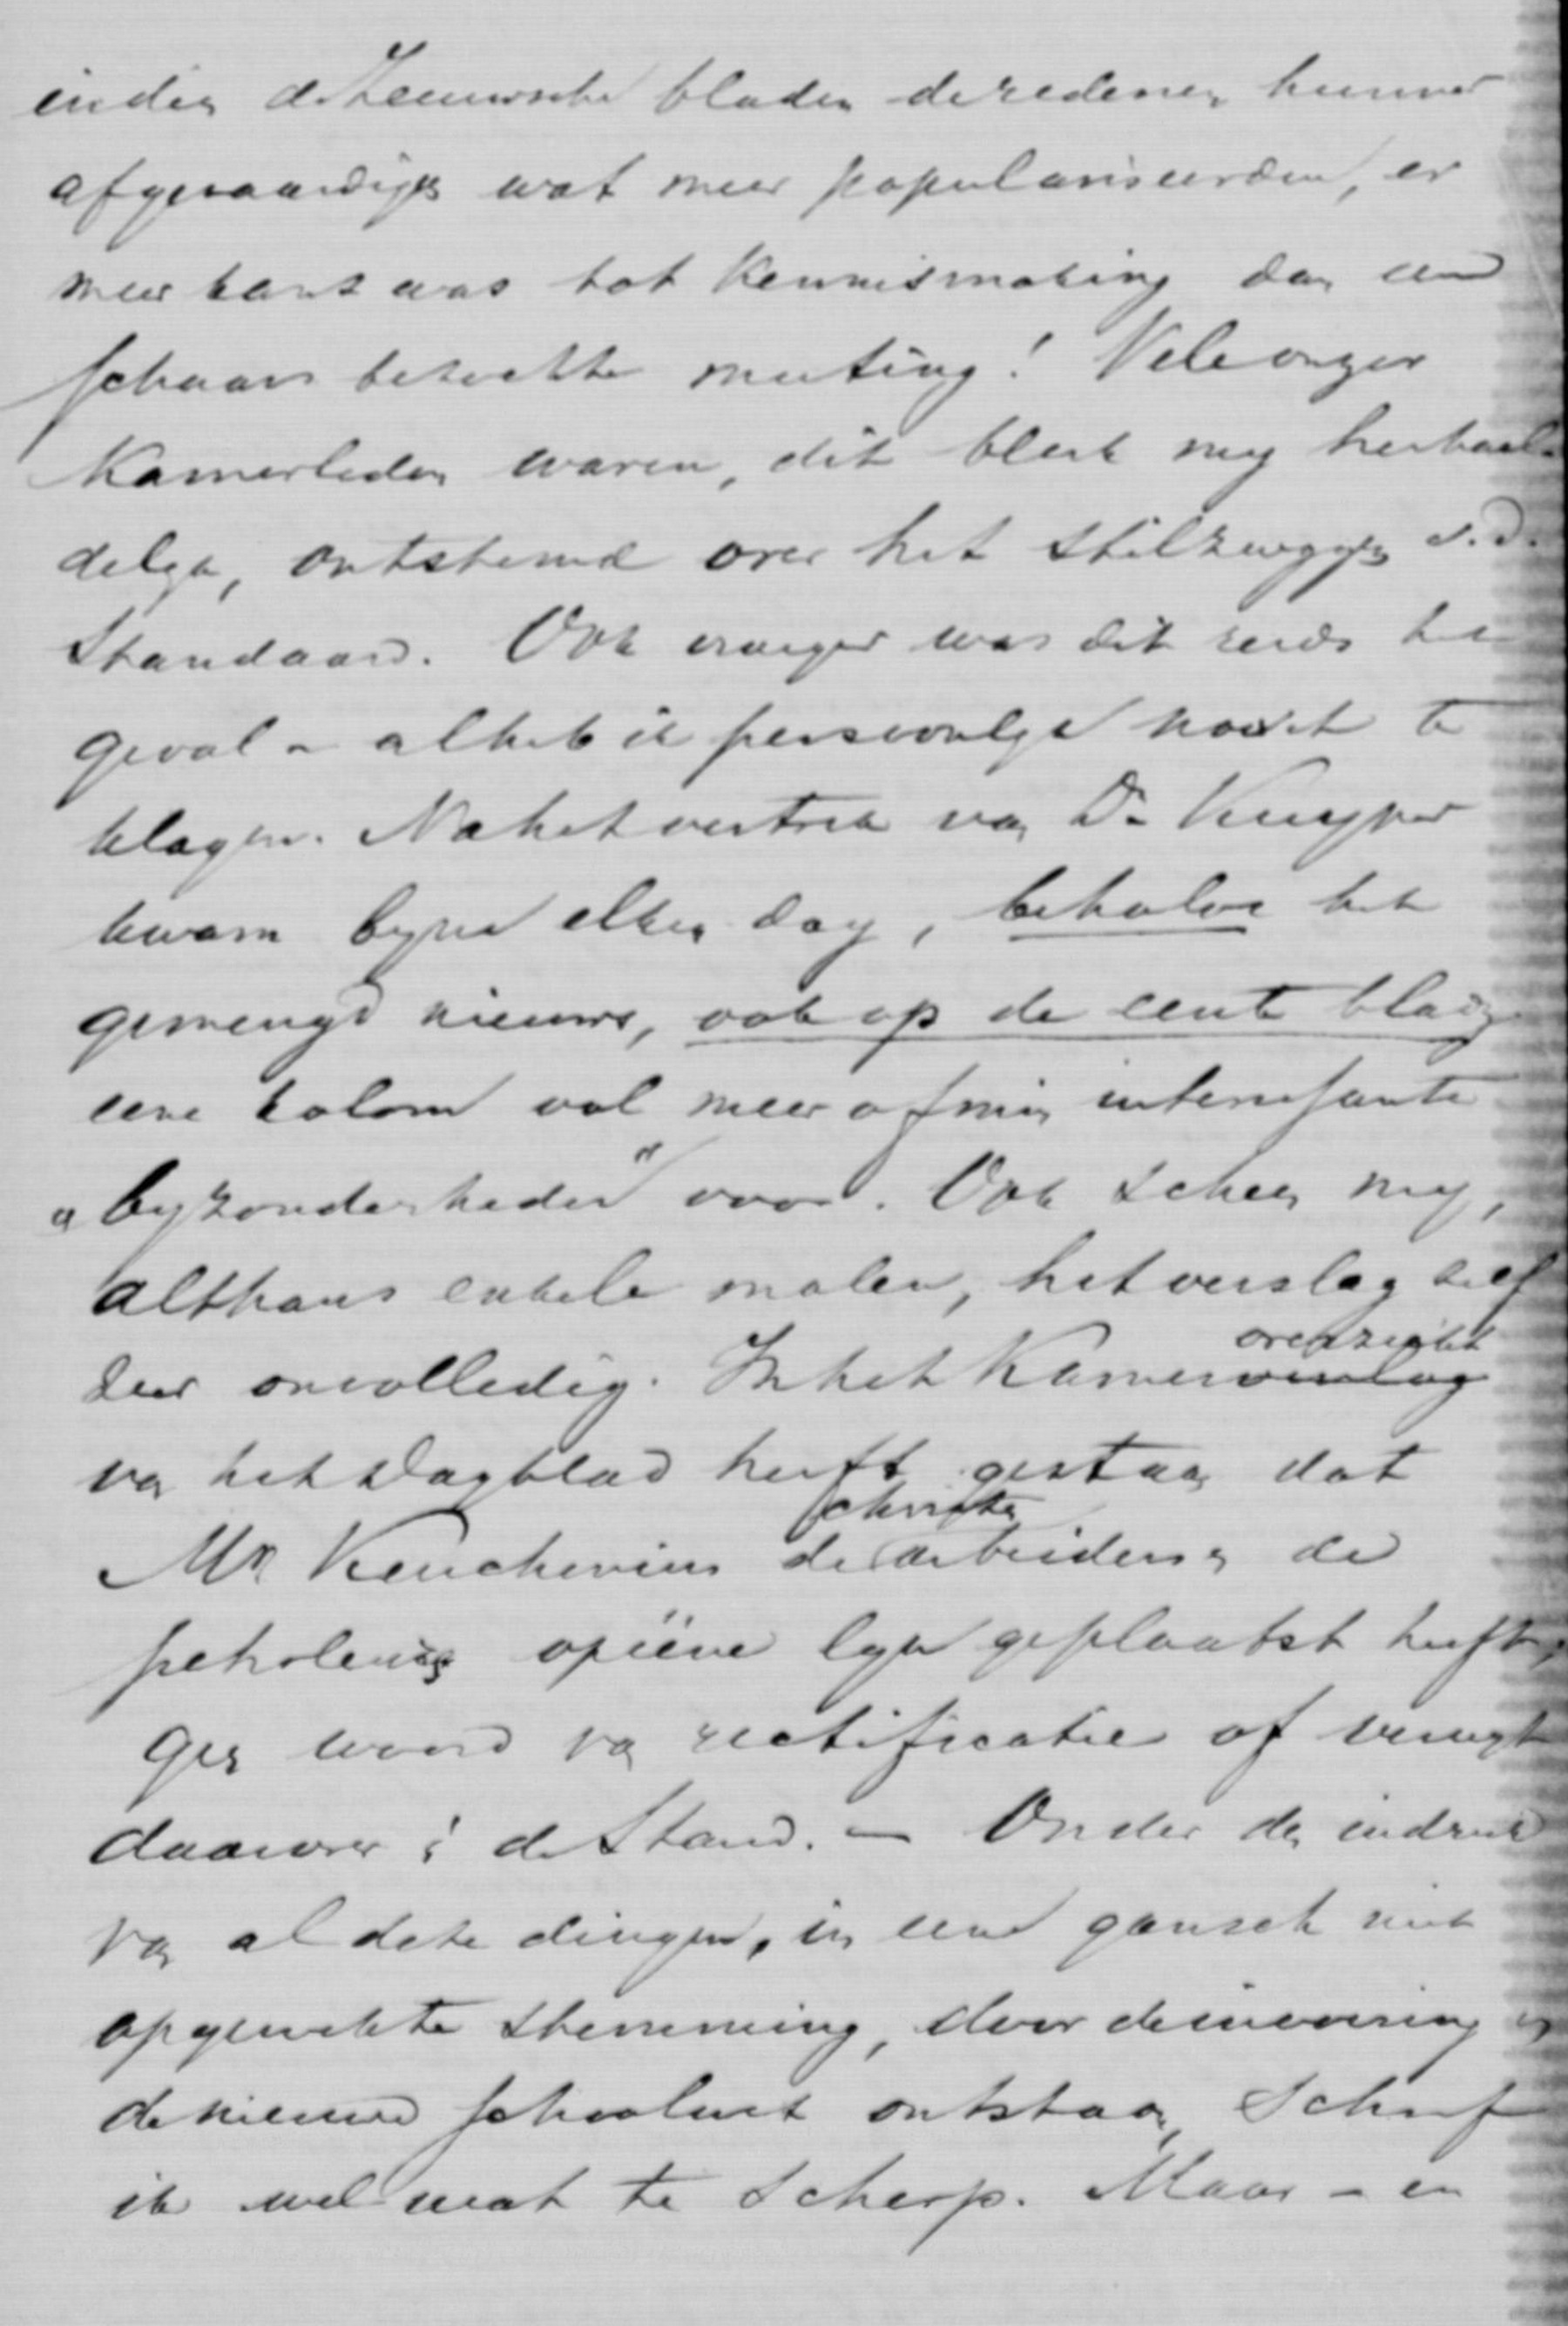 indien de Zeeuwsche bladen de redenen hunner
afgevaardigde wat meer populariseerden, er
meer kans was tot kennismaking dan een
schaars bezochte meeting! Vele onzer
Kamerleden waren, dit bleek my herhaal-
delyk, ontstemd over het stilzwygen v. d.
Standaard. Ook vroeger was dit reeds het
geval - al heb ik persoonlyk nooit te
klagen. Na het vertrek van Dr Kuyper
kwam byna elken dag, behalve het
gemengd nieuws, ook op de eerste bladz.
eene kolom vol meer of min interessante
„byzonderheden" voor. Ook scheen my,
althans enkele malen, het verslag zelf
zeer onvolledig. In het Kamerverslag overzicht
van het Dagblad heeft gestaan dat
Mr Keuchenius de christen arbeiders en de
petroleurs op ééne lyn geplaatst heeft;
geen woord van rectificatie of verweyt
daarover in de Stand. — Onder den indruk
van al deze dingen, in eene gansch niet
opgewekte stemming, door de invoering van
de nieuwe schoolwet ontstaan, schreef
ik wel wat te scherp. Maar - en